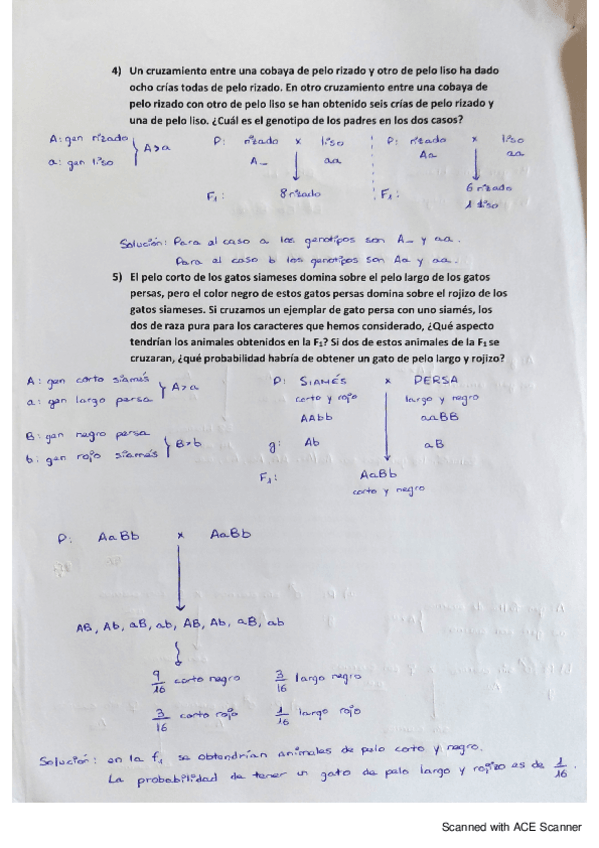 4) Un cruzamiento entre una cobaya de pelo rizado y otro de pelo liso ha dado
ocho crías todas de pelo rizado. En otro cruzamiento entre una cobaya de
pelo rizado con otro de pelo liso se han obtenido seis crías de pelo rizado y
una de pelo liso. ¿Cuál es el genotipo de los padres en los dos casos?
A: gen rizado
a: gen liso
A>a
P: rizado x liso
A_ aa
F₁: 8 rizado
P: rizado x liso
Aa aa
F₁: 6 rizado
1 liso
Solución: Para al caso a los genotipos son A_ y aa.
Para al caso b los genotipos son Aa y aa.
5) El pelo corto de los gatos siameses domina sobre el pelo largo de los gatos
persas, pero el color negro de estos gatos persas domina sobre el rojizo de los
gatos siameses. Si cruzamos un ejemplar de gato persa con uno siamés, los
dos de raza pura para los caracteres que hemos considerado, ¿Qué aspecto
tendrían los animales obtenidos en la F₁? Si dos de estos animales de la F₁ se
cruzaran, ¿qué probabilidad habría de obtener un gato de pelo largo y rojizo?
A: gen corto siamés
a: gen largo persa
A>a
B: gen negro persa
b: gen rojo siamés
B>b
P: SIAMÉS x PERSA
corto y rojo largo y negro
AAbb aaBB
g: Ab aB
F₁: AaBb
corto y negro
P: AaBb x AaBb
AB, Ab, aB, ab, AB, Ab, aB, ab
9/16 corto negro 3/16 largo negro
3/16 corto rojo 1/16 largo rojo
Solución: en la f₁ se obtendrían animales de pelo corto y negro.
La probabilidad de tener un gato de pelo largo y rojizo es de 1/16.
Scanned with ACE Scanner